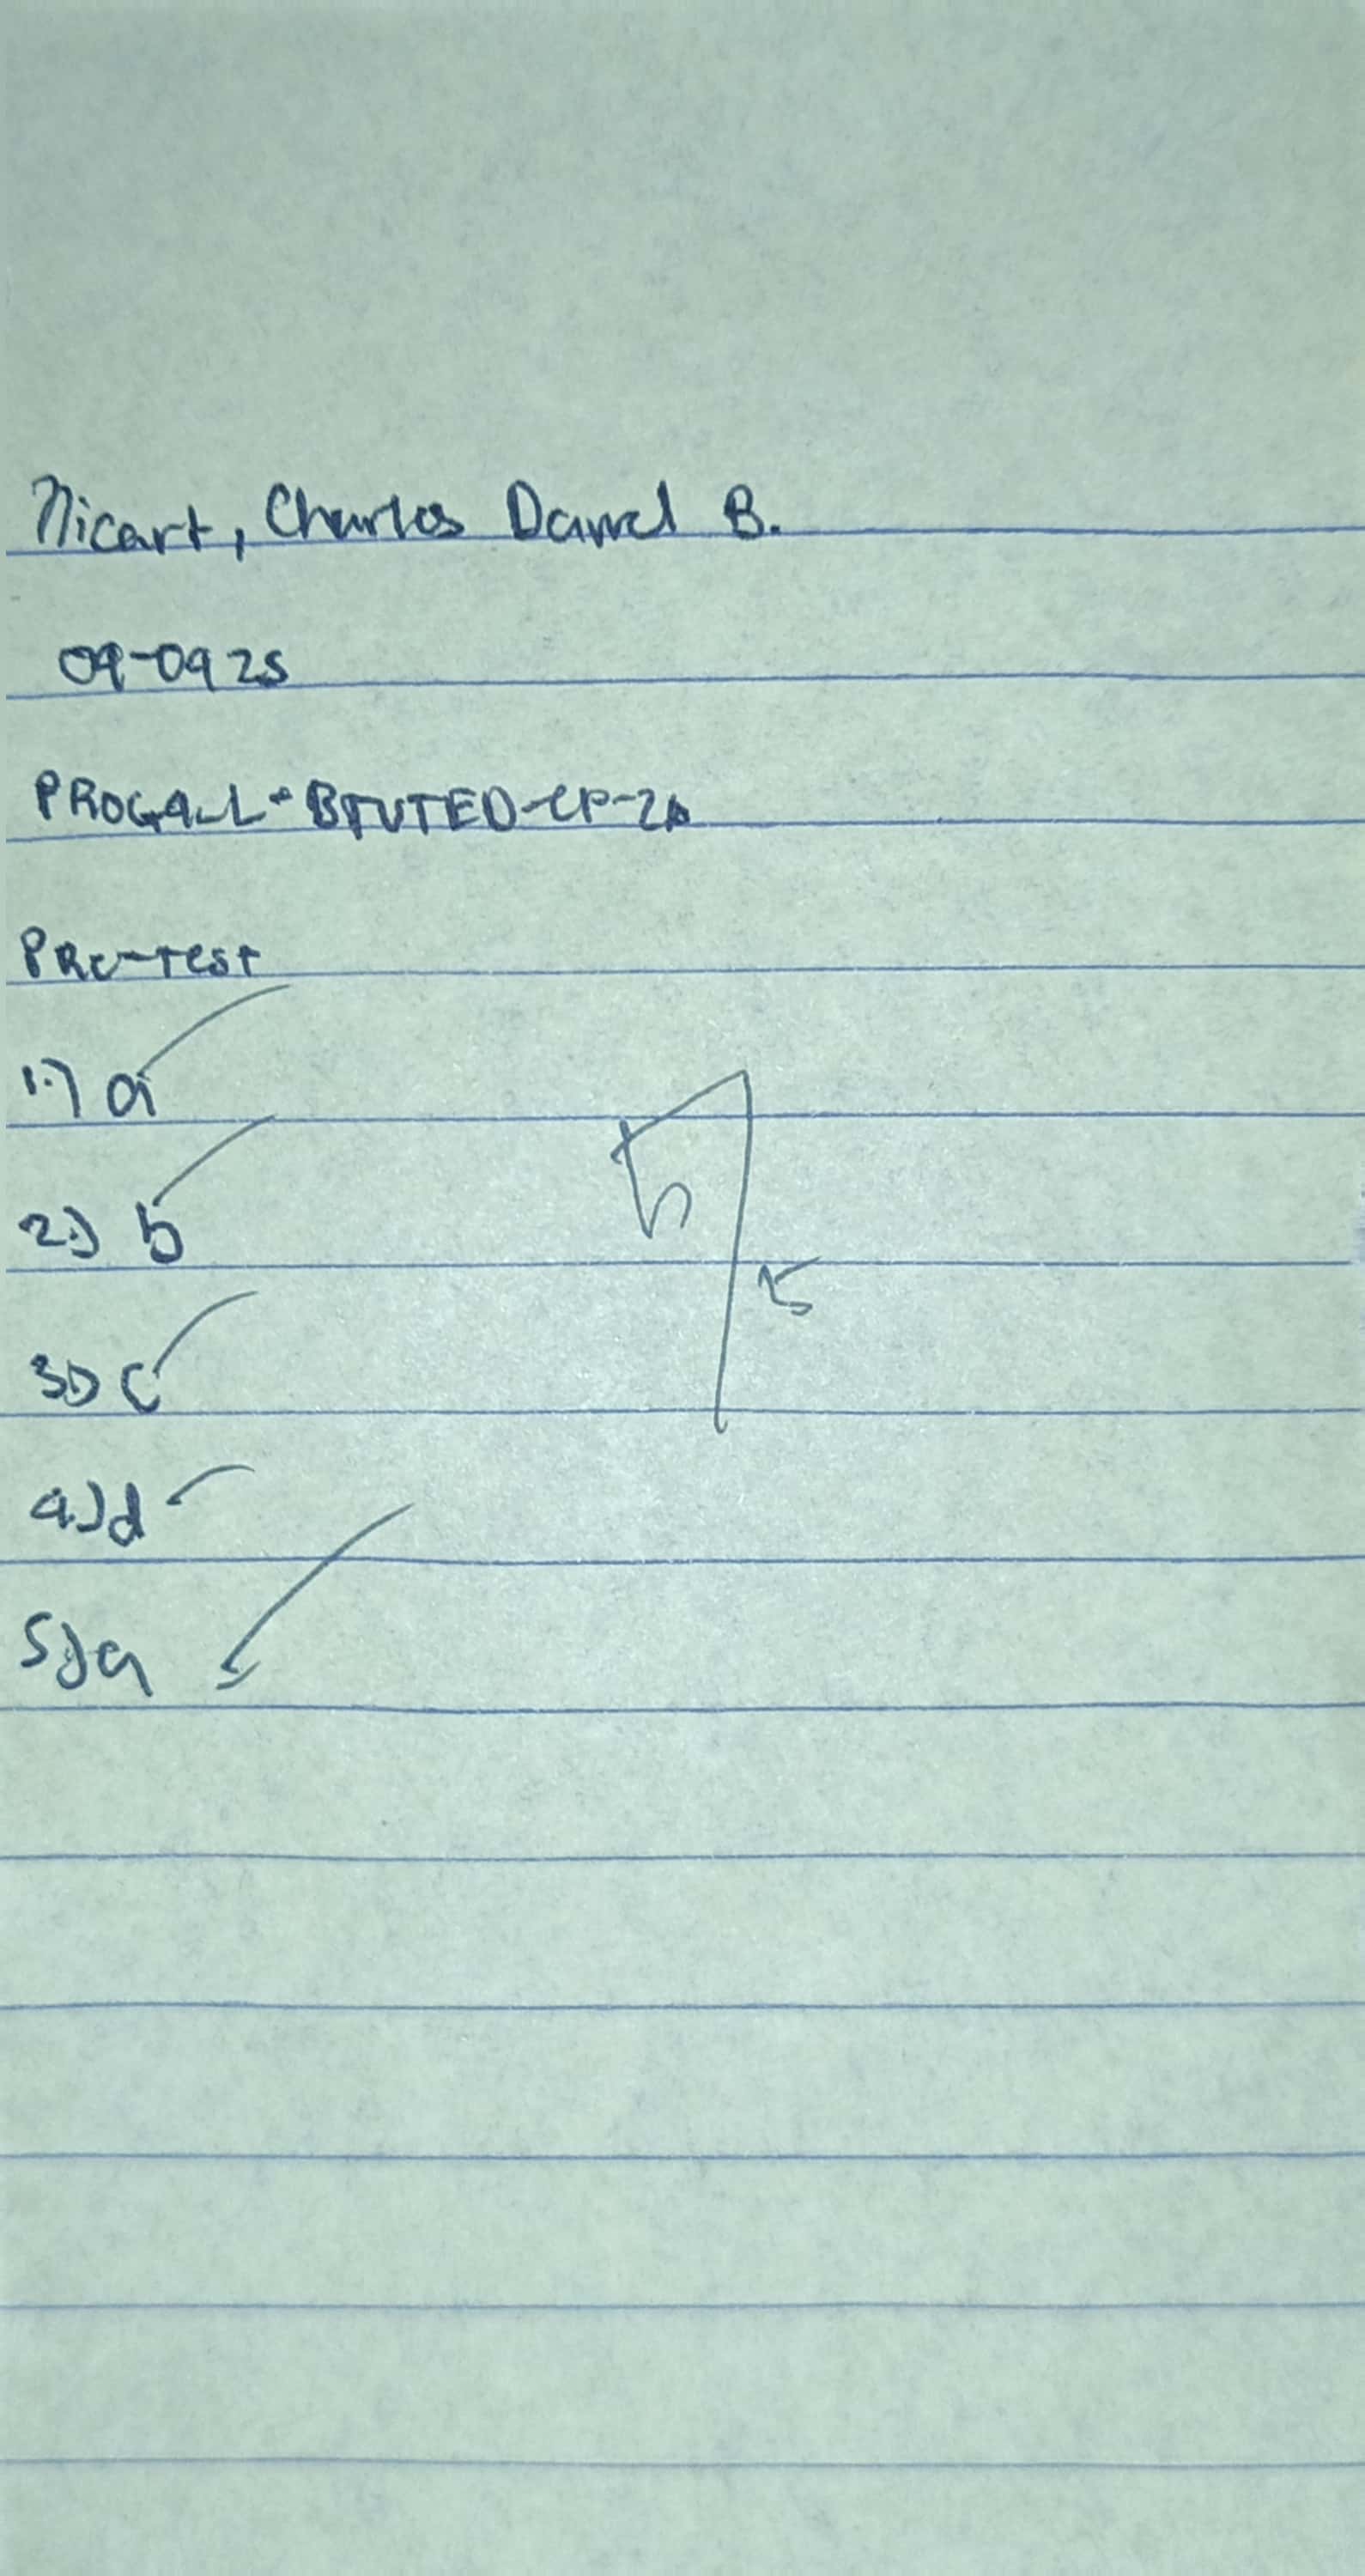 Nicart, Charles Darrel B.
09-09 25
PROG4LL-BTVTED-CP-2A
PRe-Test
1.) a
2.) b
3.) c
4.) d
5.) a
5
5